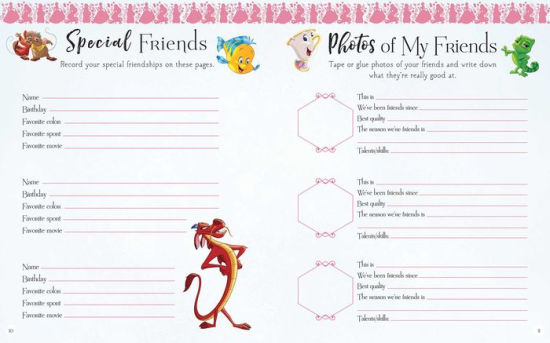 Special Friends
Record your special friendships on these pages.
Name
Birthday
Favorite color
Favorite sport
Favorite movie
Name
Birthday
Favorite color
Favorite sport
Favorite movie
Name
Birthday
Favorite color
Favorite sport
Favorite movie
10
Photos of My Friends
Tape or glue photos of your friends and write down
what they're really good at.
This is
We've been friends since
Best quality
The reason we're friends is
Talents/skills
This is
We've been friends since
Best quality
The reason we're friends is
Talents/skills
This is
We've been friends since
Best quality
The reason we're friends is
Talents/skills
11